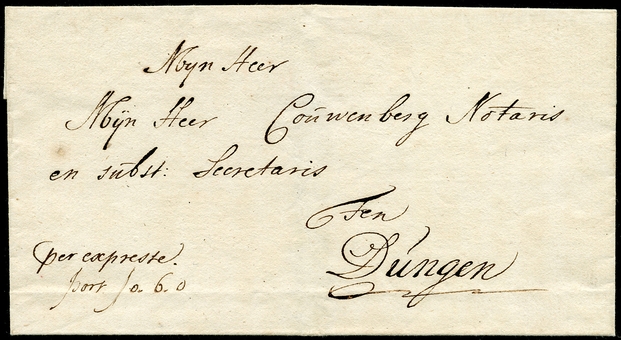 Mijn Heer
Mÿn Heer Coúwenberg Notaris
en súbst: Secretaris
Ten
Dúngen
per expreste.
port ƒ0.6.0